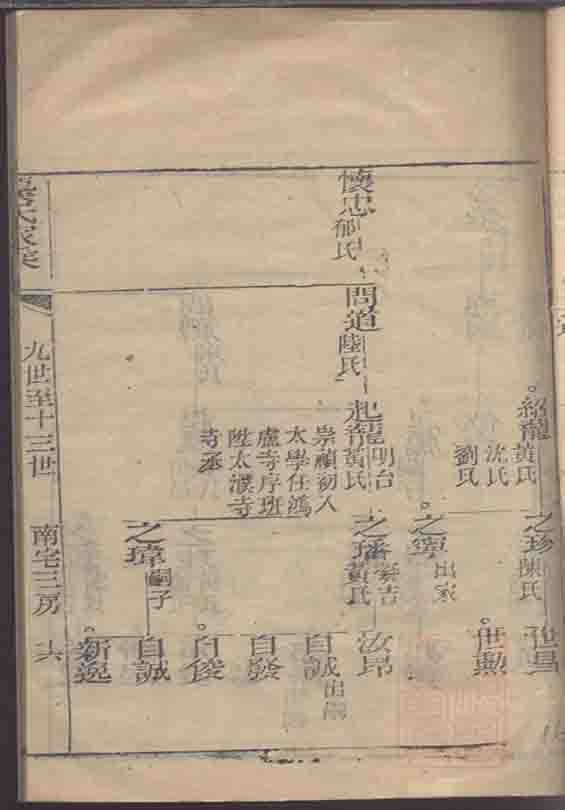 懷忠 郁氏
問道 陸氏
紹龍 黃氏
沈氏
劉氏
起龍 明台
黃氏
崇禎初入
太學任鴻
臚寺序班
陞太濮寺
寺丞
之珍 陳氏
之寧 出家
之璠
黃氏
之瑋 嗣子
世昌
世勳
汝昂
自誠 出嗣
自發
自俊
自誠
新逸
氏家
九世至十三世
南宅三房